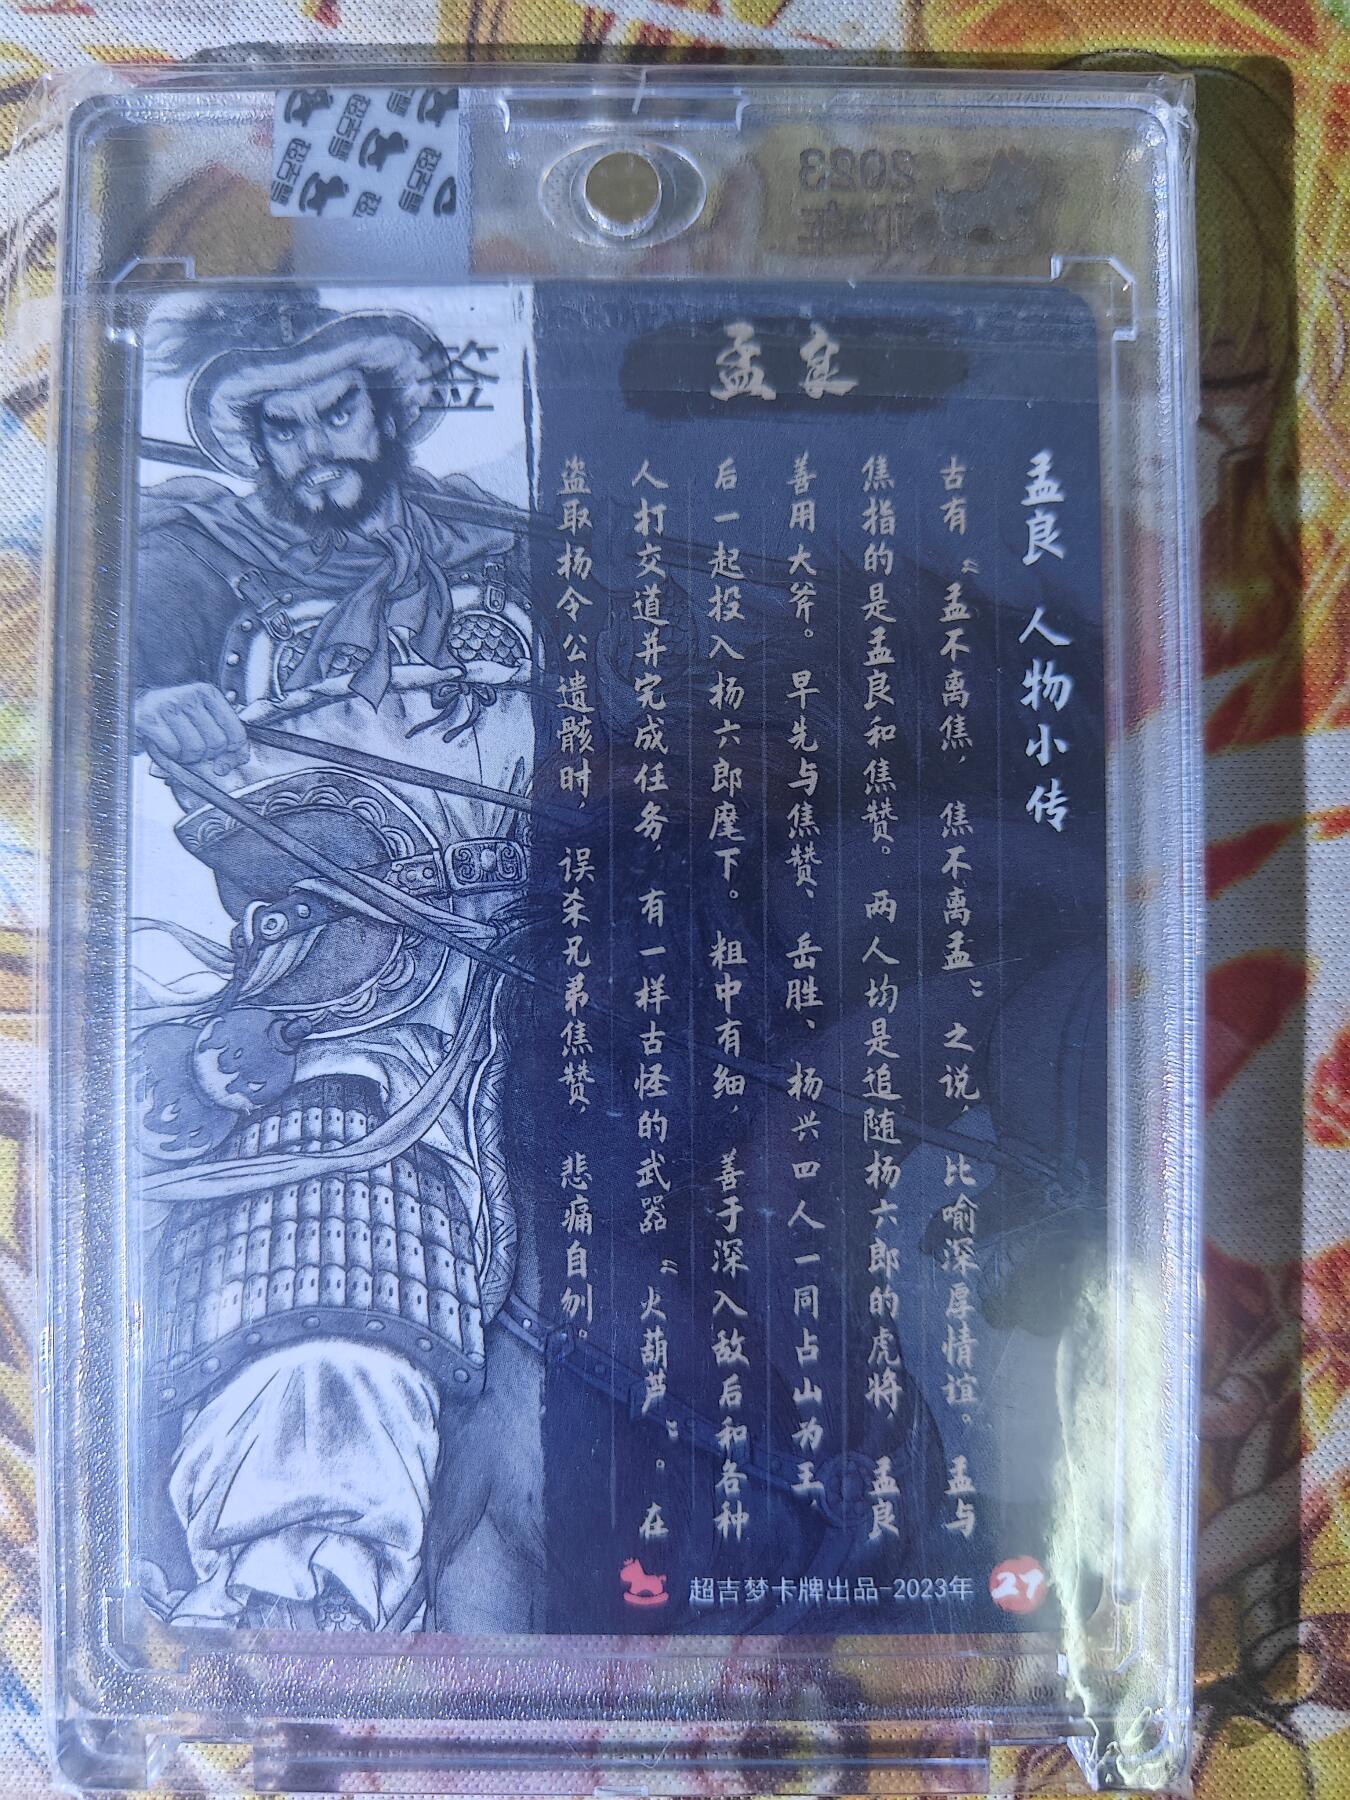 超吉梦
2023
签
孟良
孟良 人物小传
古有“孟不离焦，焦不离孟”之说，比喻深厚情谊。孟与
焦指的是孟良和焦赞。两人均是追随杨六郎的虎将，孟良
善用大斧。早先与焦赞、岳胜、杨兴四人一同占山为王，
后一起投入杨六郎麾下。粗中有细，善于深入敌后和各种
人打交道并完成任务，有一样古怪的武器“火葫芦”。在
盗取杨令公遗骸时，误杀兄弟焦赞，悲痛自刎。
超吉梦卡牌出品-2023年
27